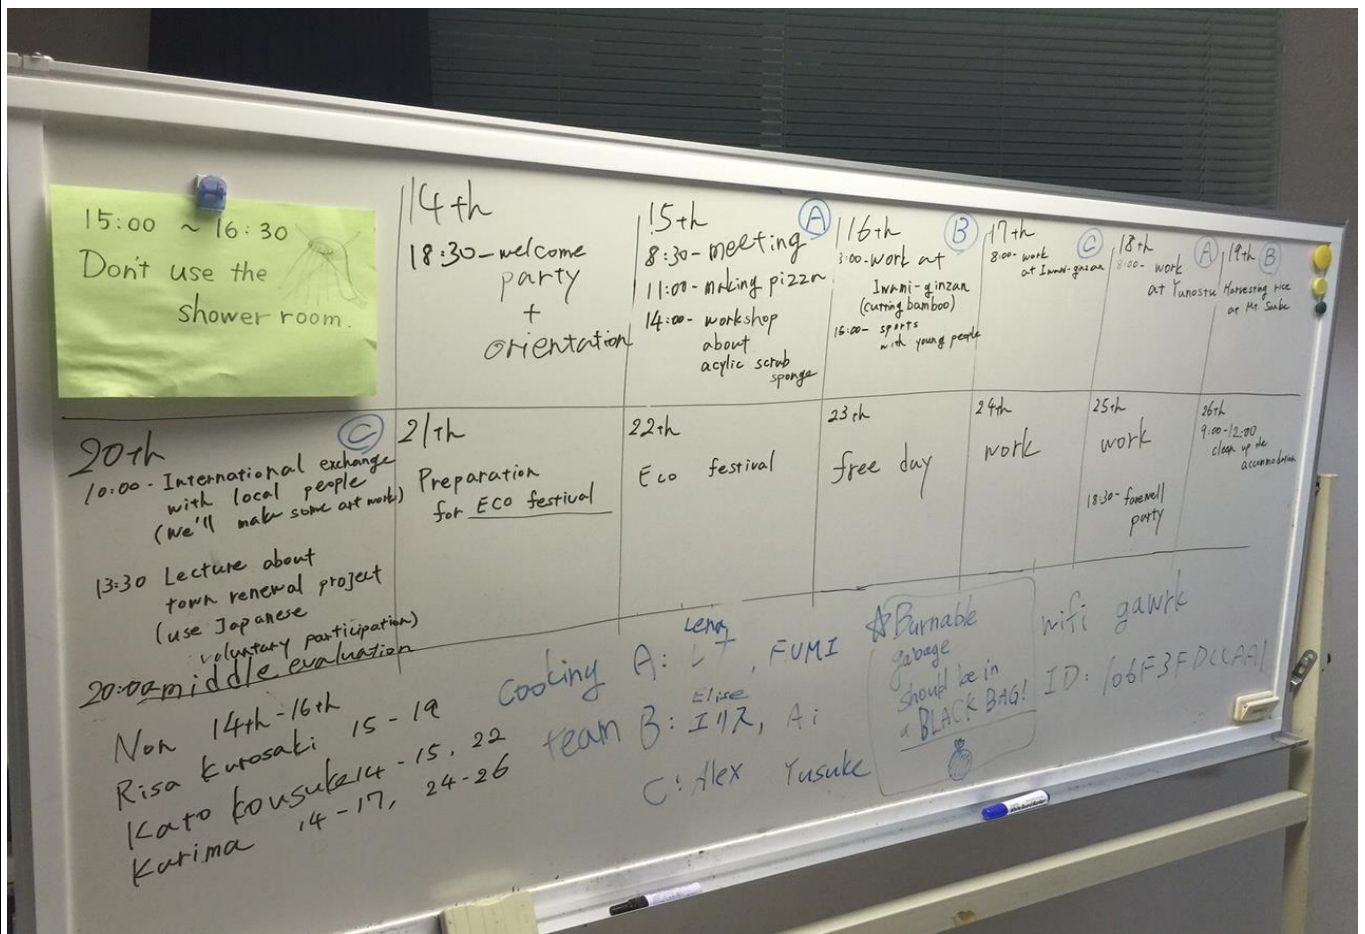 15:00 ~ 16:30
Don't use the
shower room.
14th
18:30-welcome
party
+
orientation
15th
A
8:30-meeting
11:00-making pizza
14:00-workshop
about
acylic scrub
sponge
16th
B
work at
Iwami-ginzan
(cutting bamboo)
sports
with young people
17th
C
8:00-work
at Iwami-ginzan
18th
A
8:00-work
at Yunostu
19th
B
Harvesting rice
at Mt. Sanbe
20th
C
10:00-International exchange
with local people
(we'll make some art work)
13:30 Lecture about
town renewal project
(use Japanese
voluntary participation)
20:00 middle evaluation
21th
Preparation
for ECO festival
22th
Eco festival
23th
free day
24th
work
25th
work
18:30-farewell
party
26th
9:00-12:00
clean up the
accommodation
Non 14th-16th
Risa Kurosaki 15-19
Kato Kousuke 14-15, 22
Karima 14-17, 24-26
Lena
Cooking A: レナ, FUMI
Elise
team B: エリス, Ai
C: Alex Yusuke
☆Burnable
gabage
should be in
a BLACK BAG!
wifi gawrk
ID: